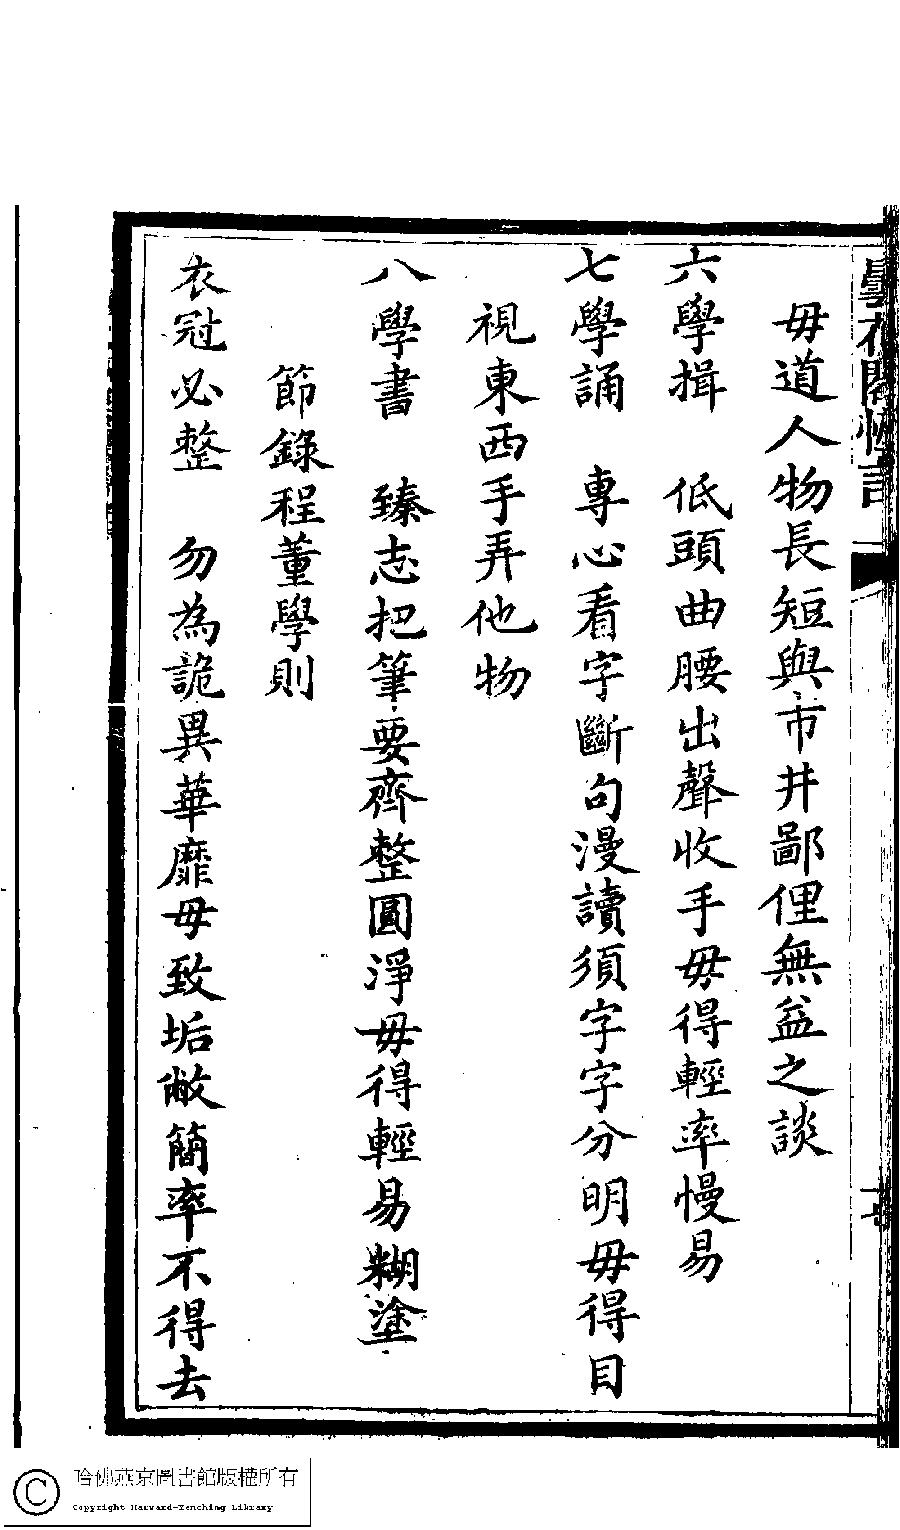 毋道人物長短與市井鄙俚無益之談
六學揖　低頭曲腰出聲收手毋得輕率慢易
七學誦　專心看字斷句漫讀須字字分明毋得目
視東西手弄他物
八學書　臻志把筆要齊整圓淨毋得輕易糊塗
節錄程董學則
衣冠必整　勿為詭異華靡毋致垢敝簡率不得去
哈佛燕京圖書館版權所有
Copyright Harvard-Yenching Library